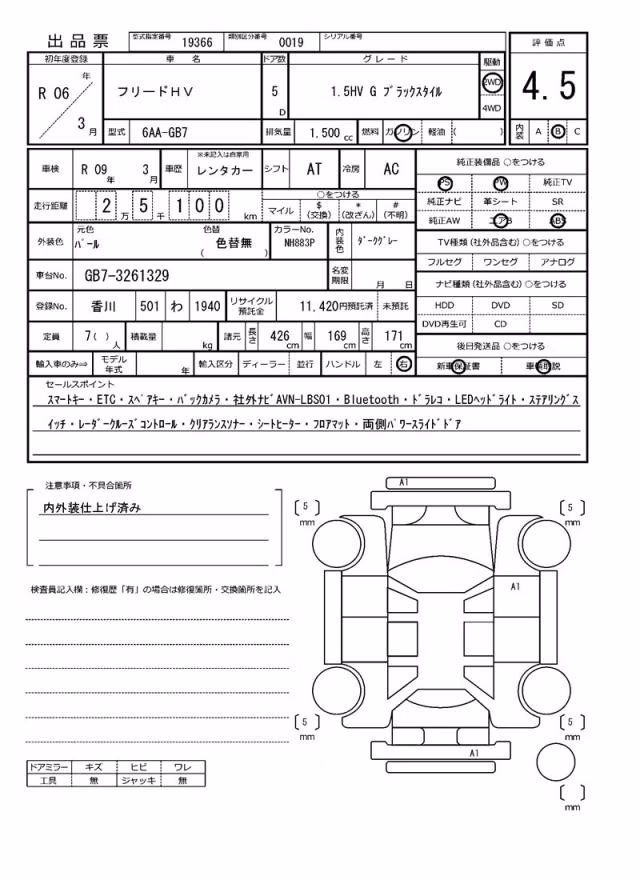 出品票 型式指定番号 19366 類別区分番号 0019 シリアル番号
評価点
初年度登録 車名 ドア数 グレード 駆動
R 06 年 フリードHV 5 D 1.5HV G ブラックスタイル 2WD 4.5
4WD
3 月 型式 6AA-GB7 排気量 1.500 cc 燃料 ガソリン 軽油 ( ) 内装 A B C
車検 R 09 年 3 月 車歴 ※未記入は自家用 レンタカー シフト AT 冷房 AC 純正装備品 ○をつける
PS PW 純正TV
走行距離 2 万 5 千 1 0 0 km ○をつける 純正ナビ 革シート SR
マイル $ (交換) * (改ざん) # (不明) 純正AW エアB ABS
外装色 元色 パール 色替 ( 色替無 ) カラーNo. NH883P 内装色 ダークグレー TV種類 (社外品含む) ○をつける
フルセグ ワンセグ アナログ
車台No. GB7-3261329 名変期限 月 日 ナビ種類 (社外品含む) ○をつける
登録No. 香川 501 わ 1940 リサイクル預託金 11,420円預託済 未預託 HDD DVD SD
DVD再生可 CD
定員 7( ) 人 積載量 kg 諸元 長さ 426 cm 幅 169 cm 高さ 171 cm 後日発送品 ○をつける
輸入車のみ⇒ モデル年式 年 輸入区分 ディーラー 並行 ハンドル 左 右 新車保証書 車輌取説
セールスポイント
スマートキー・ETC・スペアキー・バックカメラ・社外ナビAVN-LBS01・Bluetooth・ドラレコ・LEDヘッドライト・ステアリングス
イッチ・レーダークルーズコントロール・クリアランスソナー・シートヒーター・フロアマット・両側パワースライドドア
注意事項・不具合箇所
内外装仕上げ済み
検査員記入欄：修復歴「有」の場合は修復箇所・交換箇所を記入
A1
5 mm 5 mm
A1
5 mm 5 mm
A1
mm
ドアミラー キズ ヒビ ワレ
工具 無 ジャッキ 無